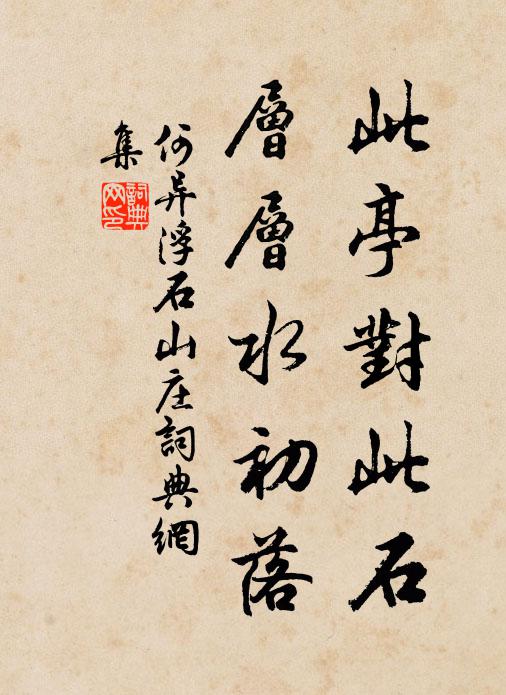 此亭對此石
層層水初落
何异浮石山庄詞典網
集
詞典
网印